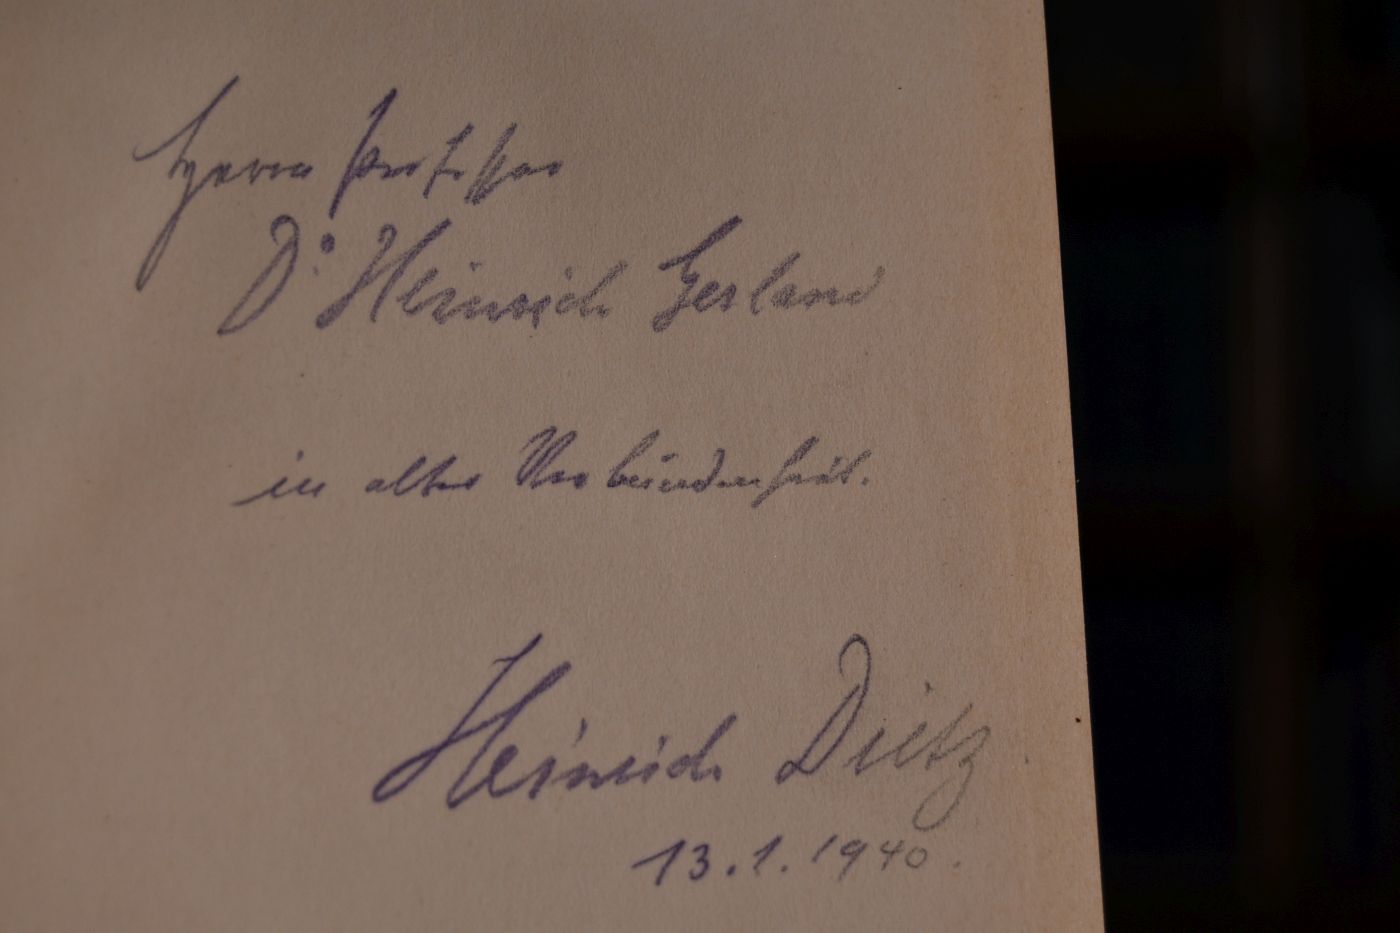 Herrn Professor
Dr. Heinrich Gerland
in alter Verbundenheit.
Heinrich Dietz
13.1.1940.